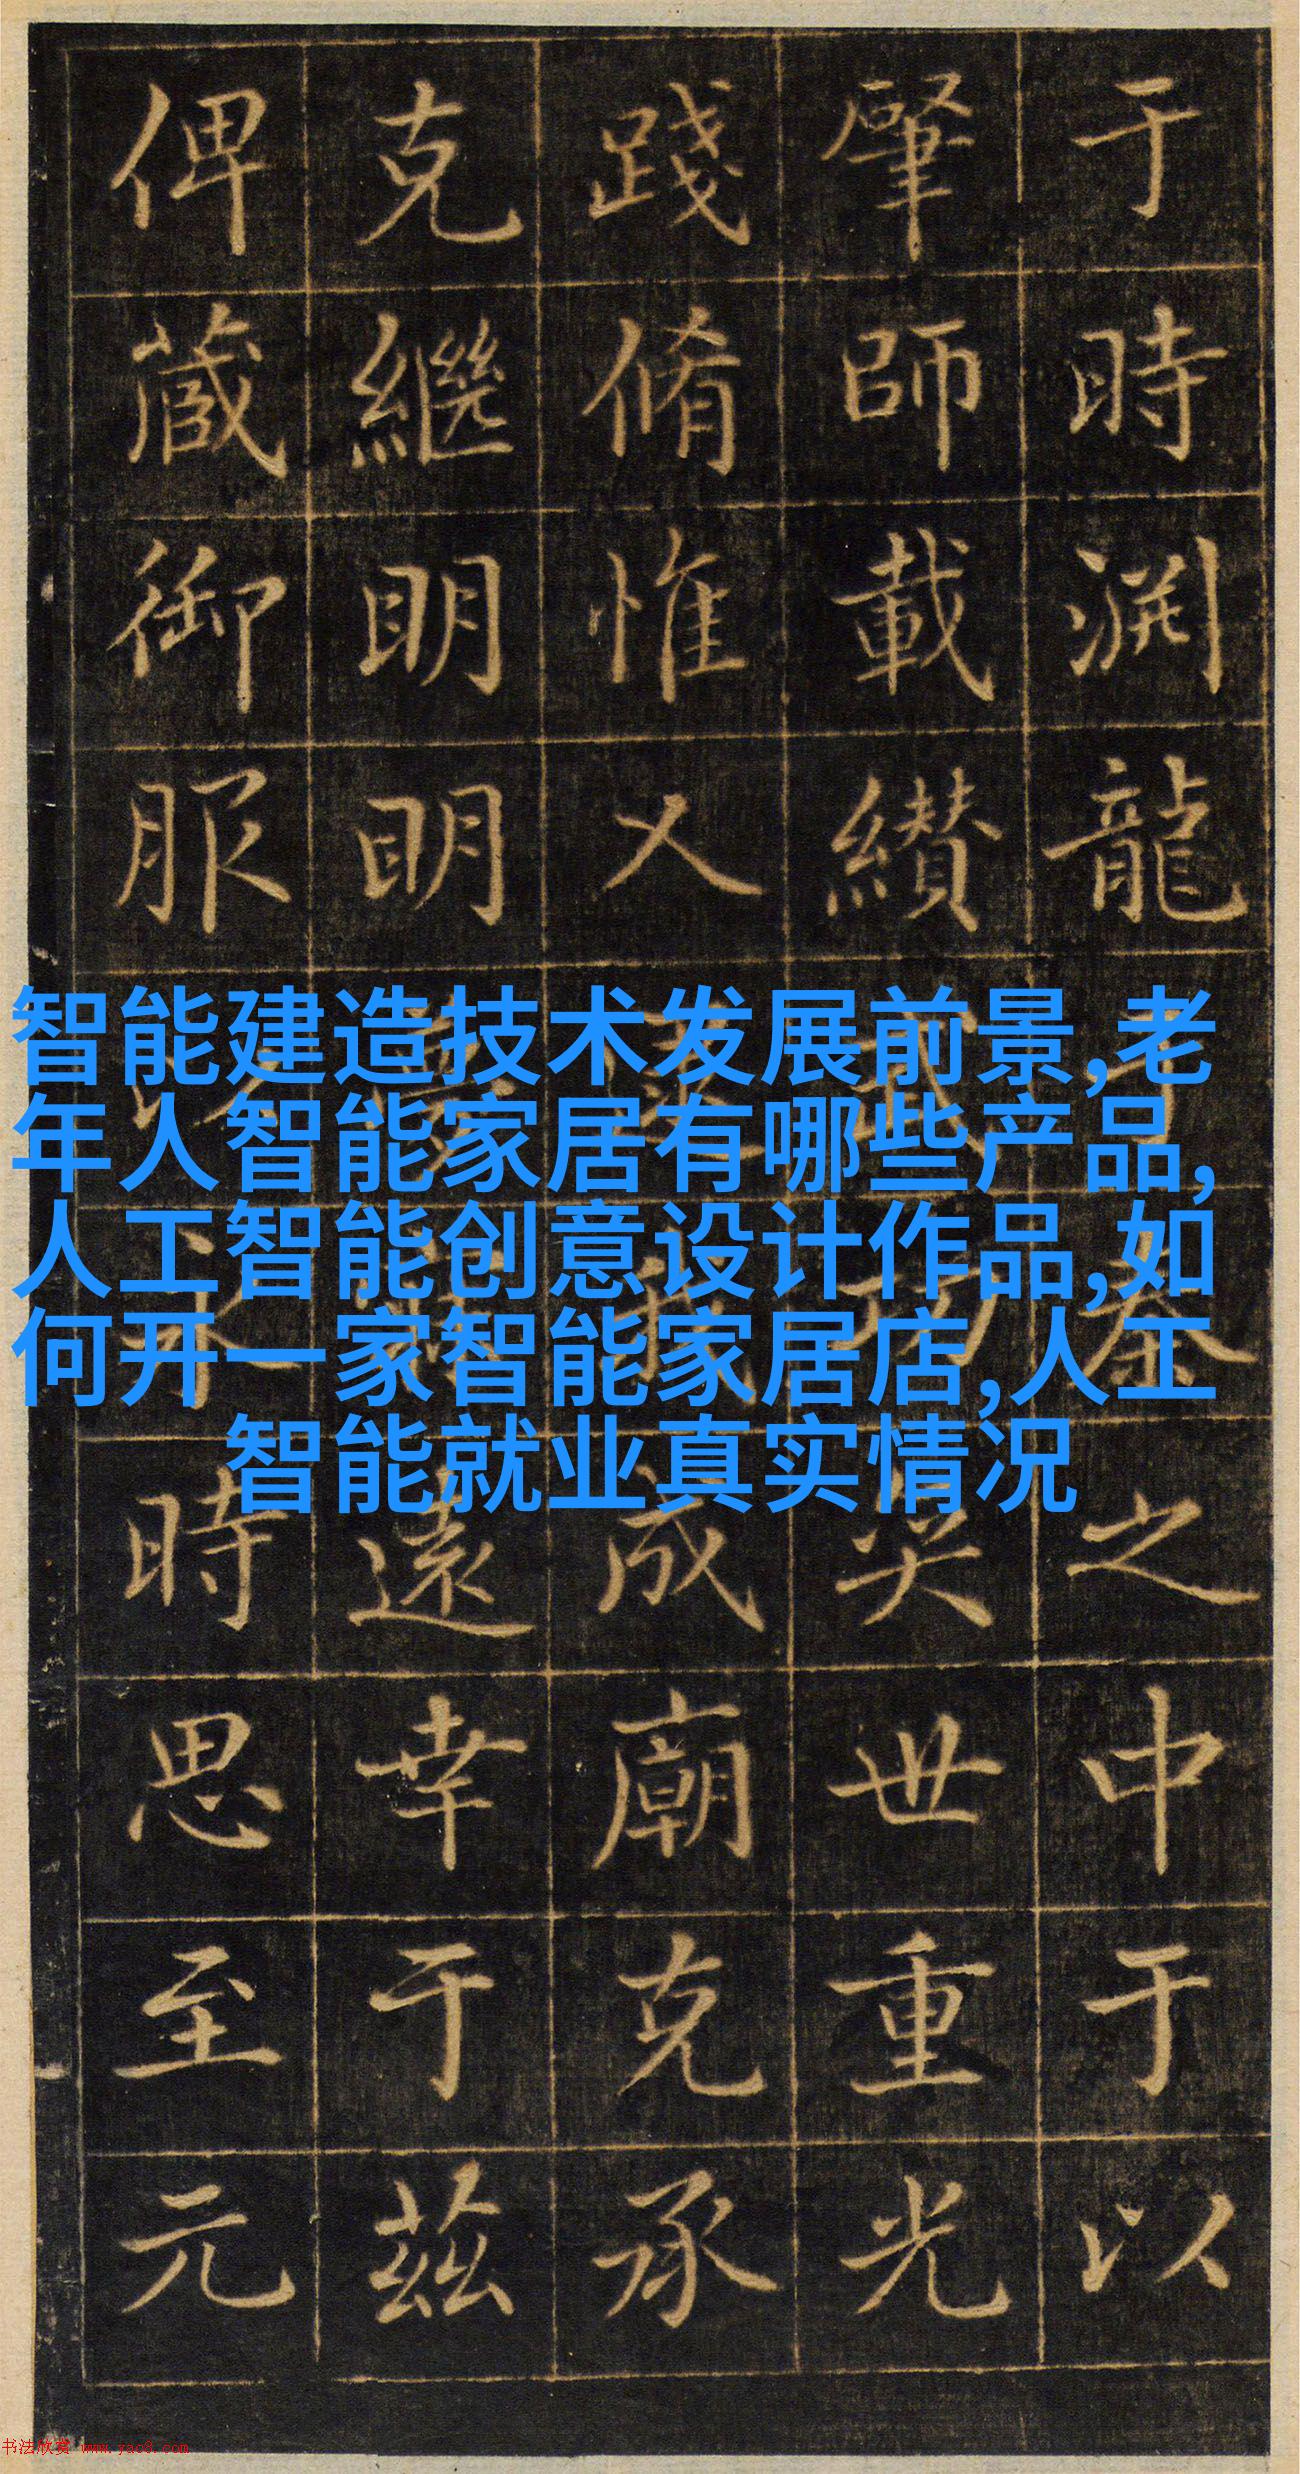 于時渊龍之中于以
肇師載纘世重光
踐脩惟人成廟克承
克繼明明遠幸于茲
俾蔵御服時思至元
智能建造技术发展前景,老
年人智能家居有哪些产品,
人工智能创意设计作品,如
何开一家智能家居店,人工
智能就业真实情况
书法欣赏 www.yac8.com